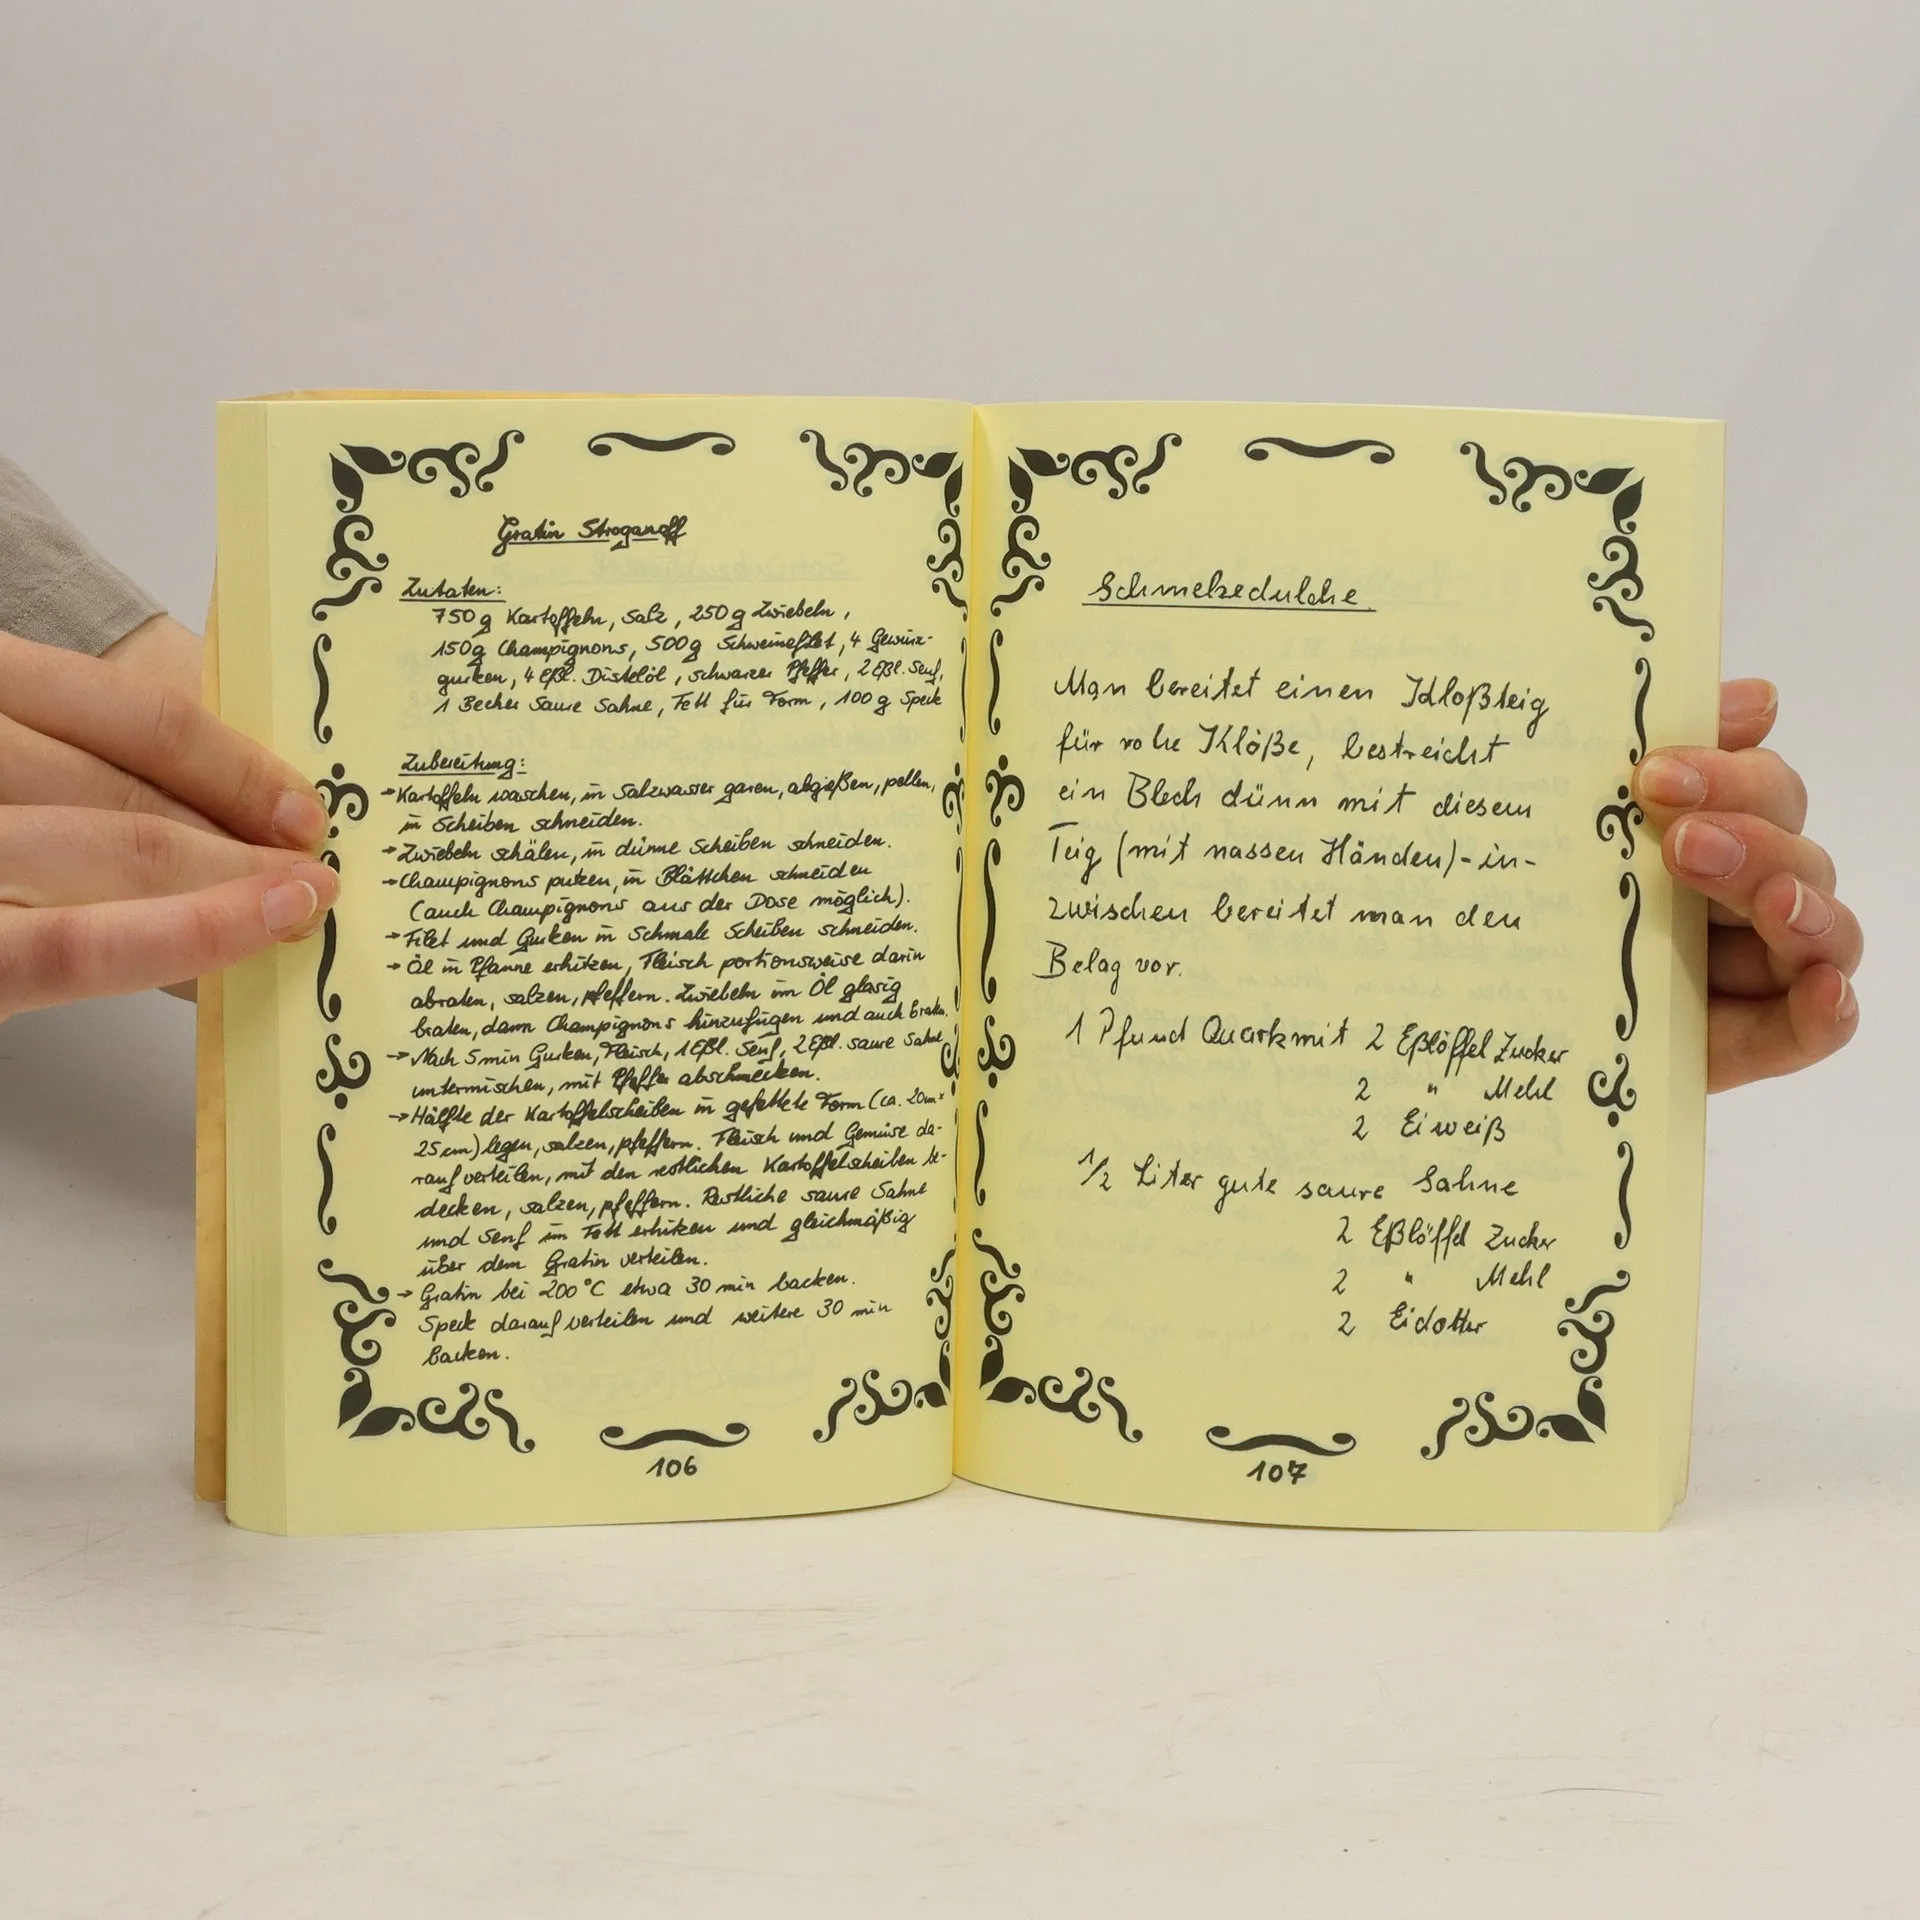 Gratin Stroganoff
Zutaten:
750 g Kartoffeln, Salz, 250 g Zwiebeln,
150g Champignons, 500g Schweinefilet, 4 Gewürz-
gurken, 4 Eßl. Distelöl, schwarzer Pfeffer, 2 Eßl. Senf,
1 Becher Saure Sahne, Fett für Form, 100 g Speck
Zubereitung:
→Kartoffeln waschen, in Salzwasser garen, abgießen, pellen,
in Scheiben schneiden.
→Zwiebeln schälen, in dünne Scheiben schneiden.
→Champignons putzen, in Blättchen schneiden
(auch Champignons aus der Dose möglich).
→Filet und Gurken in schmale Scheiben schneiden.
→ Öl in Pfanne erhitzen, Fleisch portionsweise darin
abraten, salzen, pfeffern. Zwiebeln im Öl glasig
braten, dann Champignons hinzufügen und auch braten.
→ Nach 5 min Gurken, Fleisch, 1 Eßl. Senf, 2 Eßl. saure Sahne
untermischen, mit Pfeffer abschmecken.
→ Hälfte der Kartoffelscheiben in gefettete Form (ca. 20cm×
25 cm) legen, salzen, pfeffern. Fleisch und Gemüse da-
rauf verteilen, mit den restlichen Kartoffelscheiben be-
decken, salzen, pfeffern. Restliche saure Sahne
und Senf im Fett erhitzen und gleichmäßig
über dem Gratin verteilen.
→ Gratin bei 200°C etwa 30 min backen.
Speck darauf verteilen und weitere 30 min
backen.
106
Schmelzedulche
Man bereitet einen Kloßteig
für rohe Klöße, bestreicht
ein Blech dünn mit diesem
Teig (mit nassen Händen)-in-
zwischen bereitet man den
Belag vor.
1 Pfund Quark mit 2 Eßlöffel Zucker
2 " Mehl
2 Eiweiß
1/2 Liter gute saure Sahne
2 Eßlöffel Zucker
2 " Mehl
2 Eidotter
107